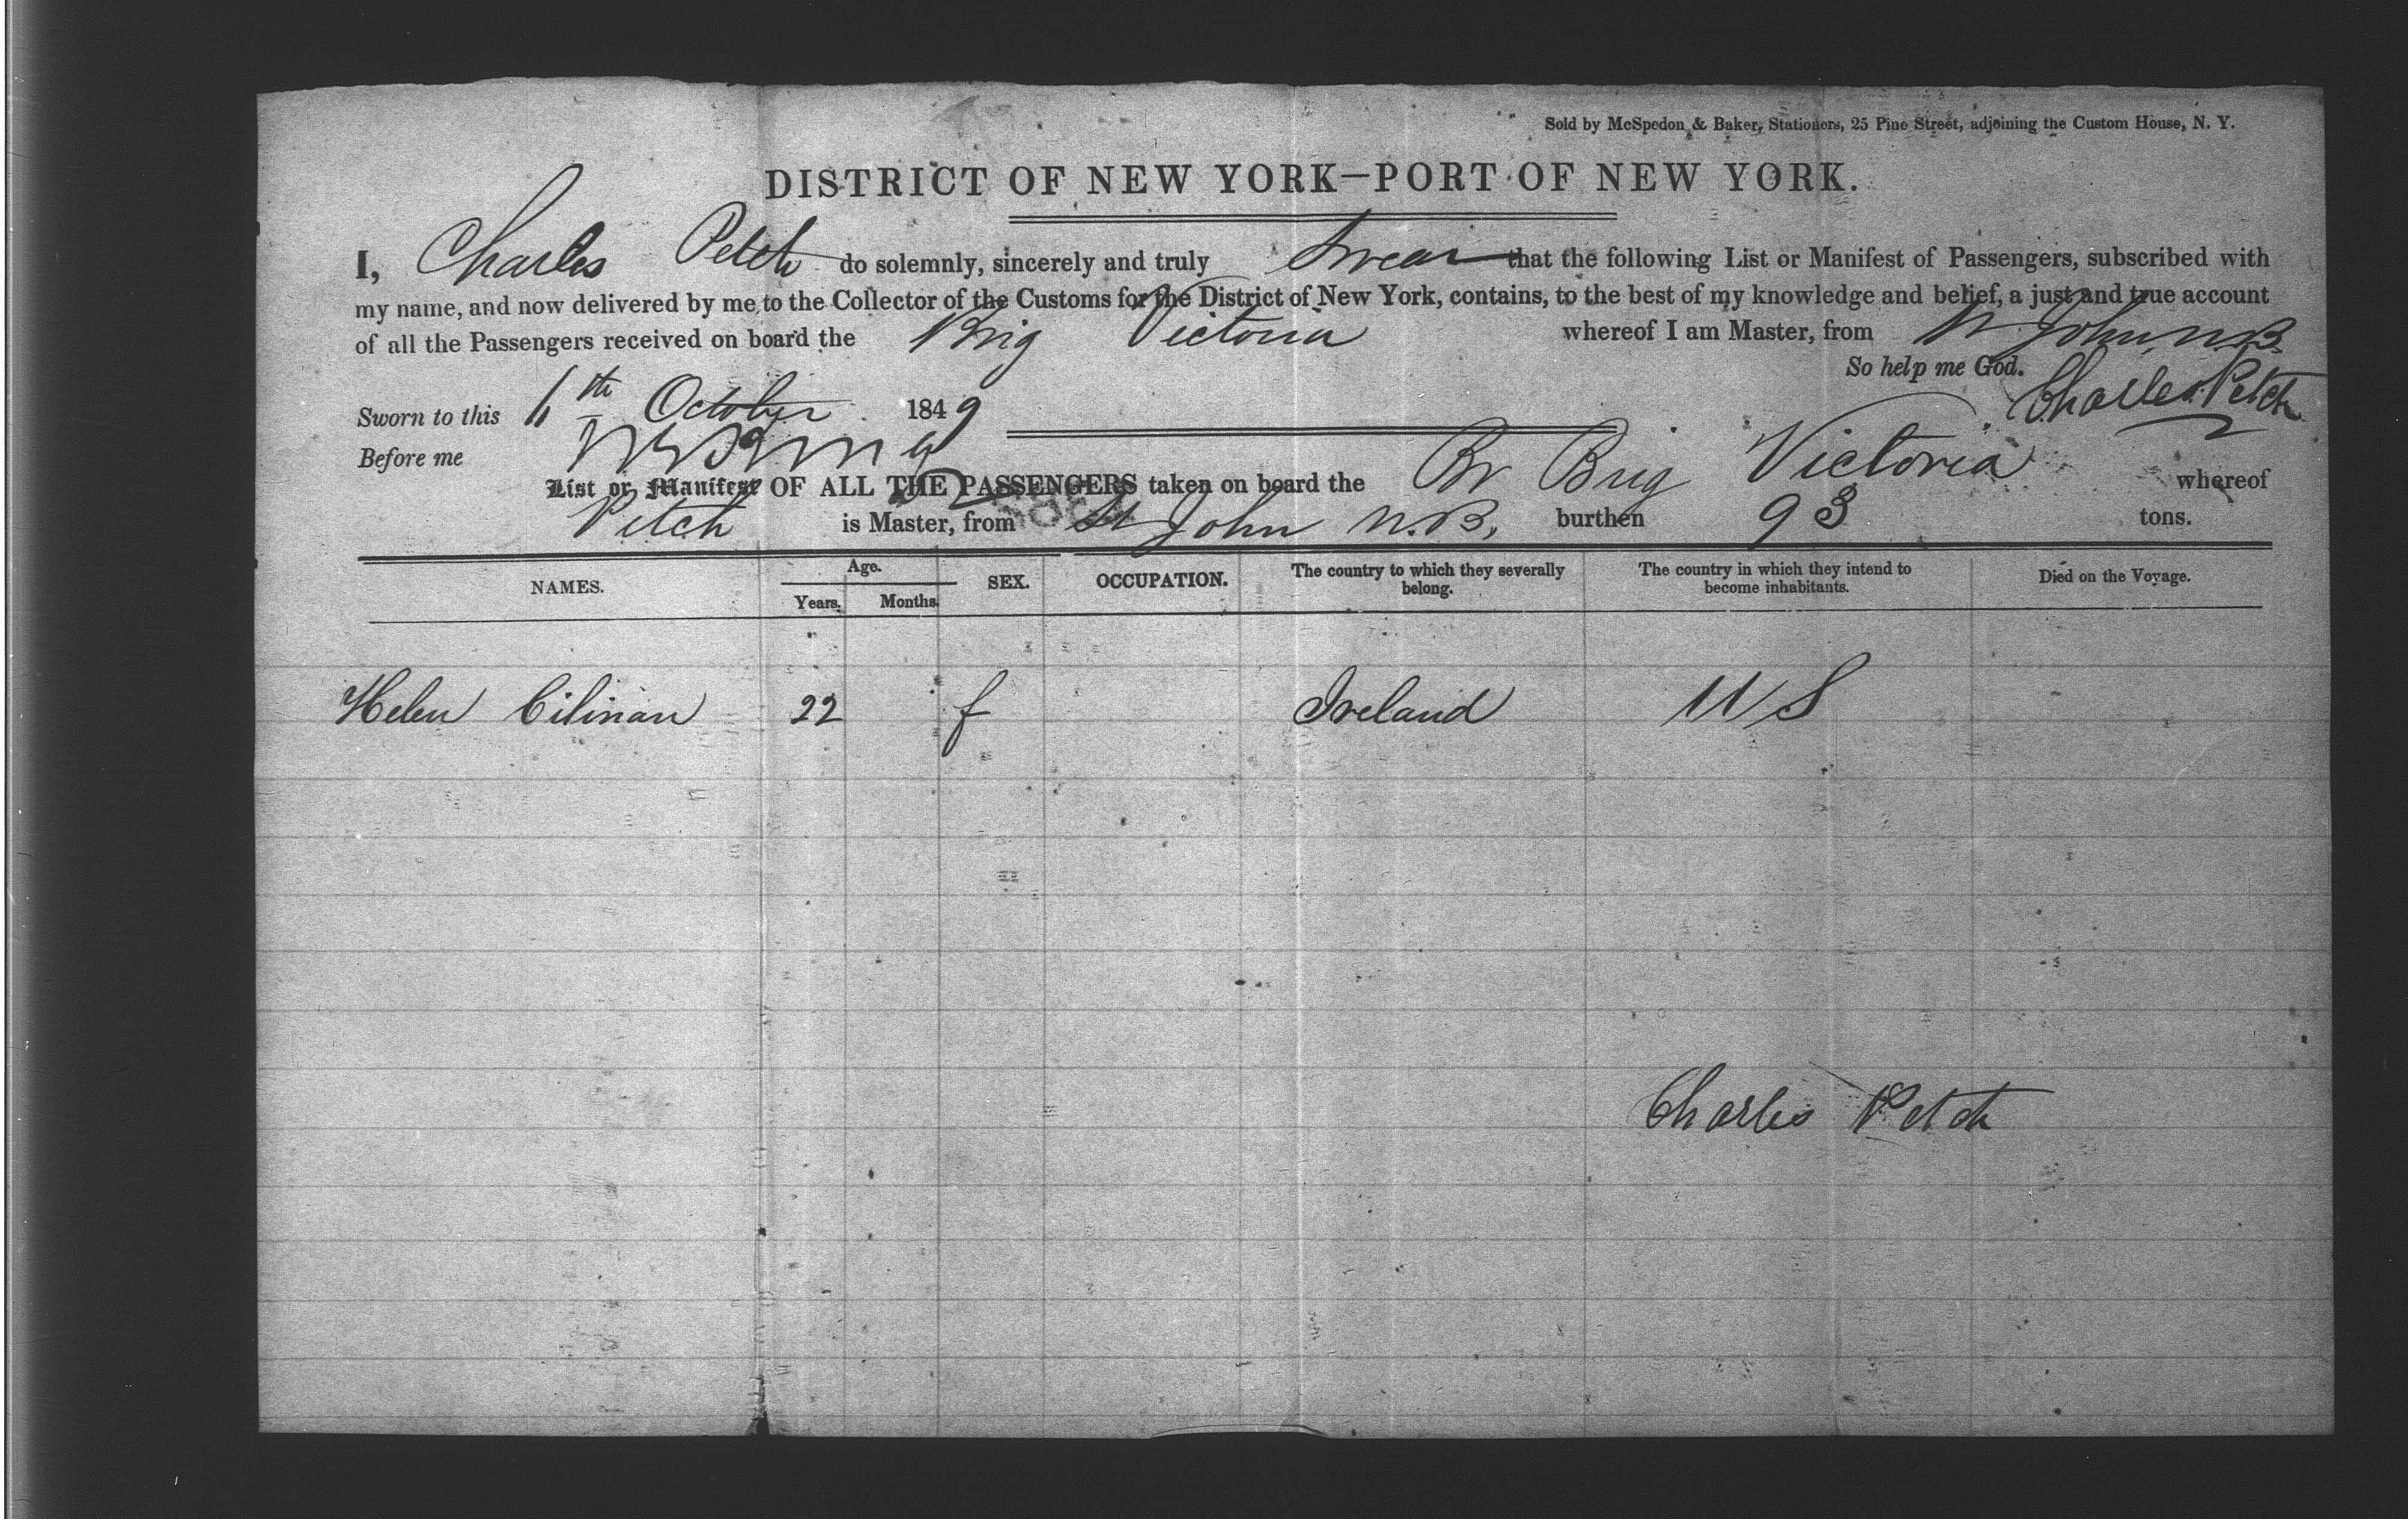 Sold by McSpedon & Baker, Stationers, 25 Pine Street, adjoining the Custom House, N. Y.
DISTRICT OF NEW YORK—PORT OF NEW YORK.
I, Charles Petch do solemnly, sincerely and truly Swear that the following List or Manifest of Passengers, subscribed with
my name, and now delivered by me to the Collector of the Customs for the District of New York, contains, to the best of my knowledge and belief, a just and true account
of all the Passengers received on board the Brig Victoria whereof I am Master, from St John, N.B.
So help me God.
Charles Petch
Sworn to this th October 1849
Before me
List or Manifest OF ALL THE PASSENGERS taken on board the Br Brig Victoria whereof
Petch is Master, from St John N.B, burthen 93 tons.
NAMES. Age. Years. Months. SEX. OCCUPATION. The country to which they severally belong. The country in which they intend to become inhabitants. Died on the Voyage.
Helen Cilinan 22 f Ireland U S
Charles Petch